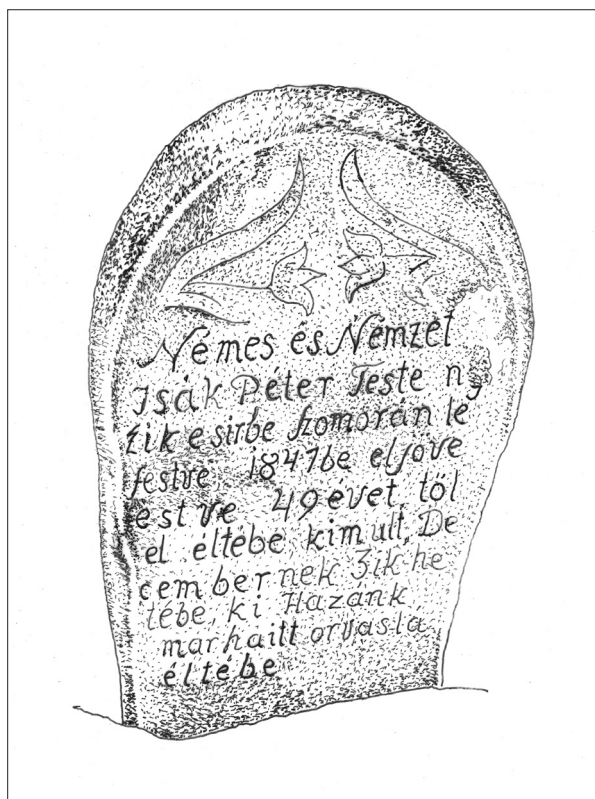 Némes és Némzet
Isák Péter Teste ny
zik e sirbe szomorán le
festve, 1847be elsőve
estve 49 évet töl
el éltébe kimult, De
cembernek 3ik he
tébe, ki Hazánk
marhaitt orvaslá
éltébe